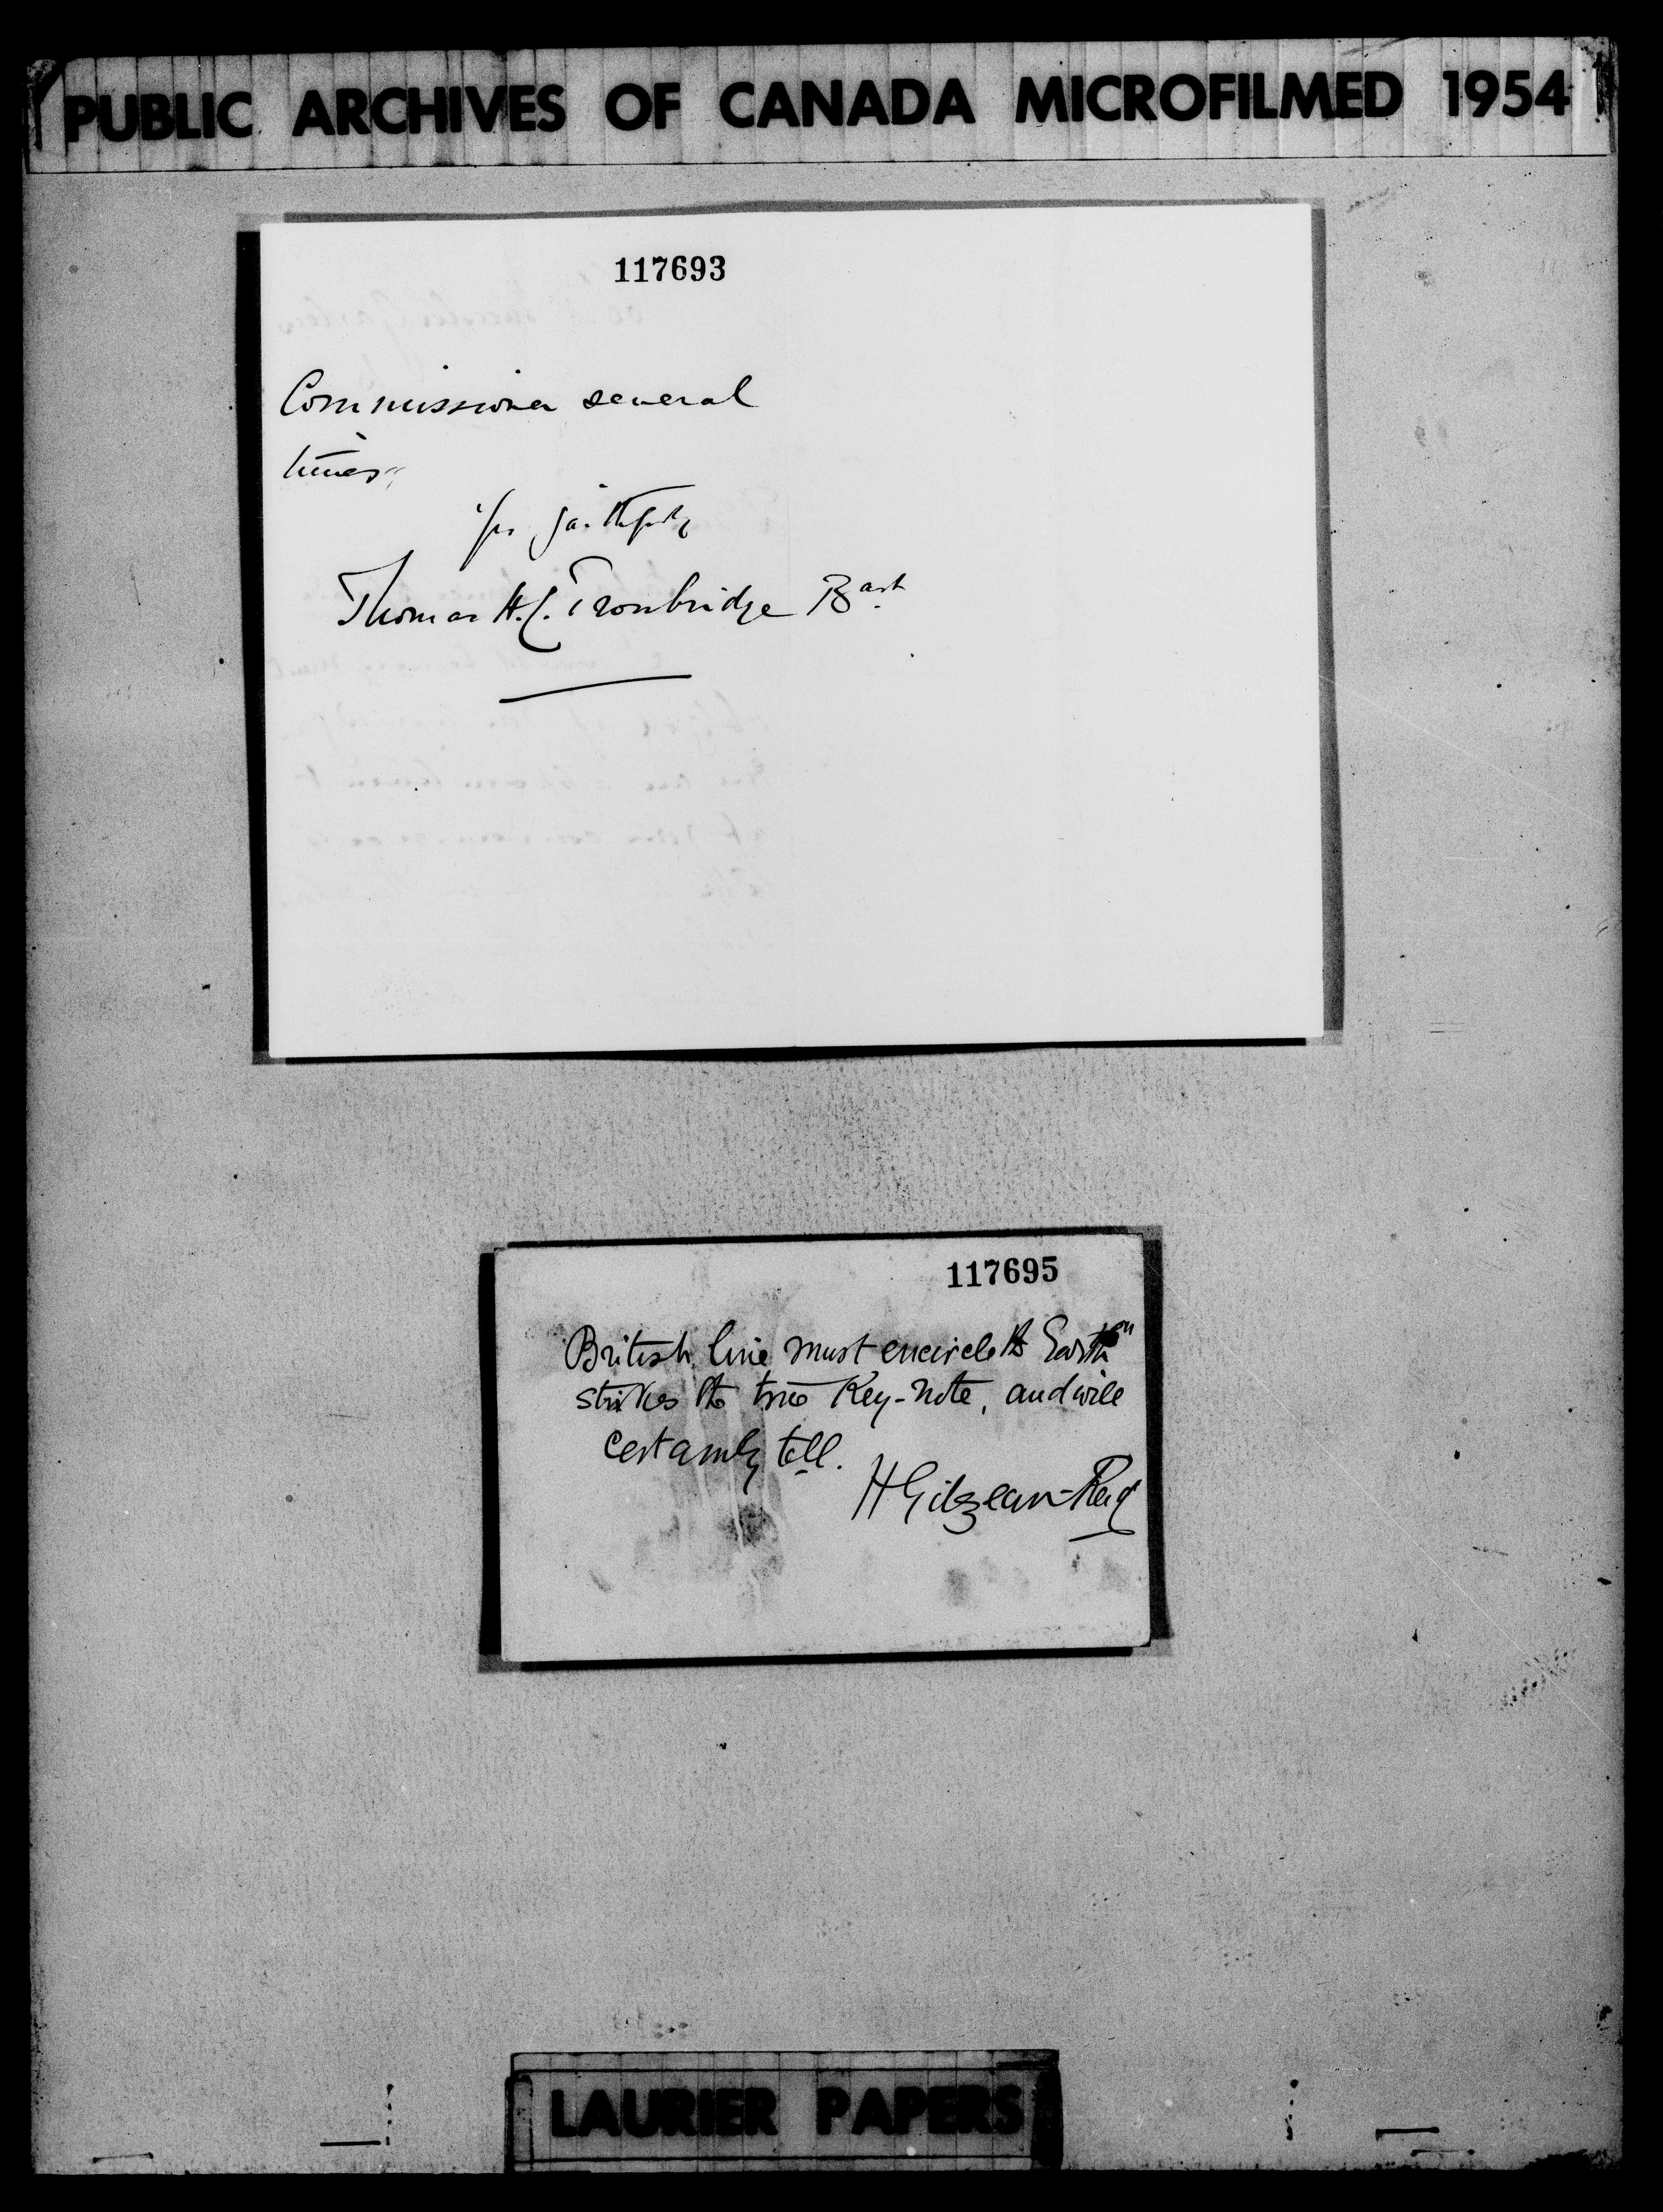 PUBLIC ARCHIVES OF CANADA MICROFILMED 1954
117693
Commissioner several
times"
yrs faithfully
Thomas H. C. Troubridge Bart
117695
British line must encircle the Earth"
strikes the true Key-note, and will
certainly tell.
H Gilzean-Reid
LAURIER PAPERS